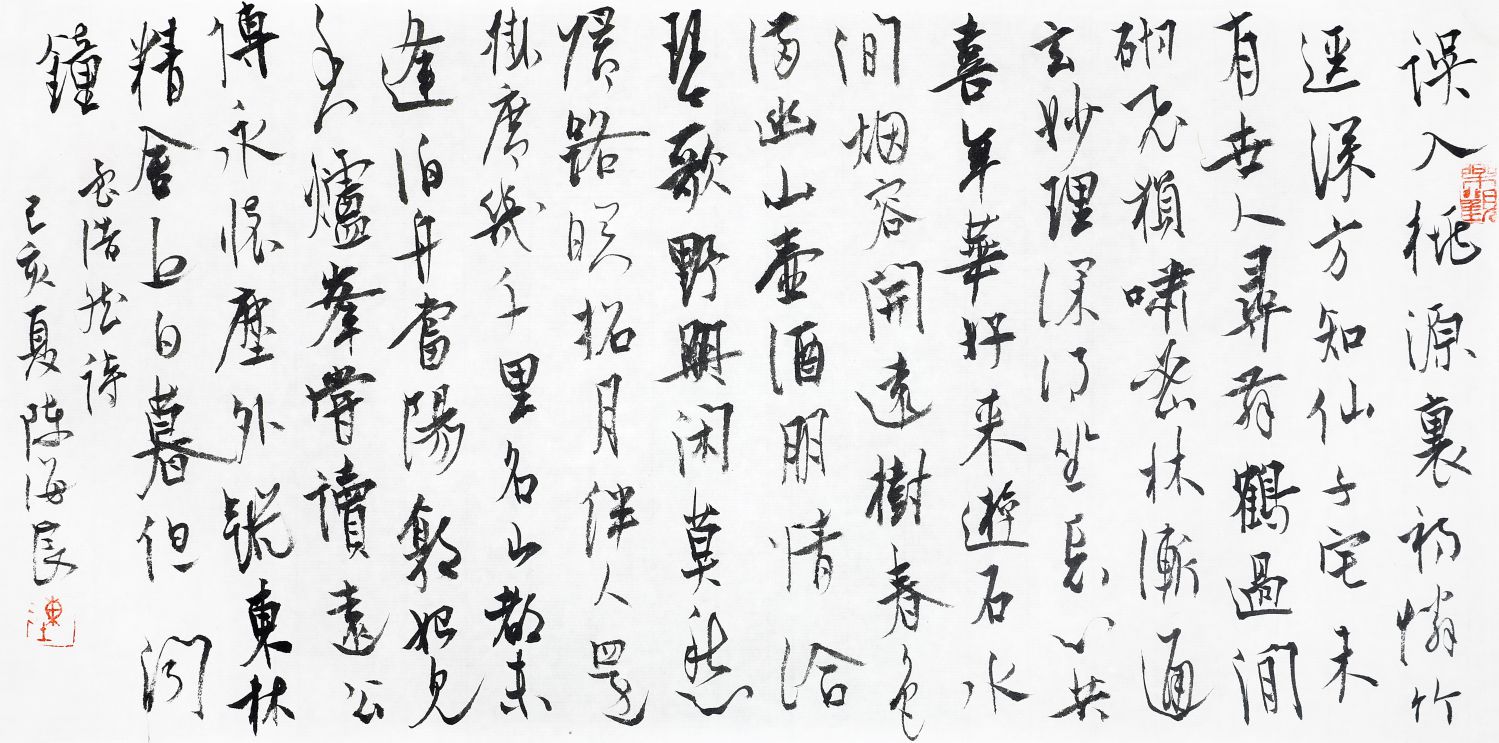 誤入桃源裏初憐竹
逕深方知仙子宅未
有世人尋舞鶴過閒
砌飛猿嘯密林漸通
玄妙理深得坐忘心共
喜年華好来遊石水
間烟容開遠樹春色
滿幽山壺酒朋情洽
琴歌野興閑莫愁
歸路暝招月伴人還
掛席幾千里名山都未
逢泊舟尋陽郭始見
香爐峯嘗讀遠公
傳永懷塵外蹤東林
精舍近日暮但聞
鐘
孟浩然詩
己亥夏陳海良